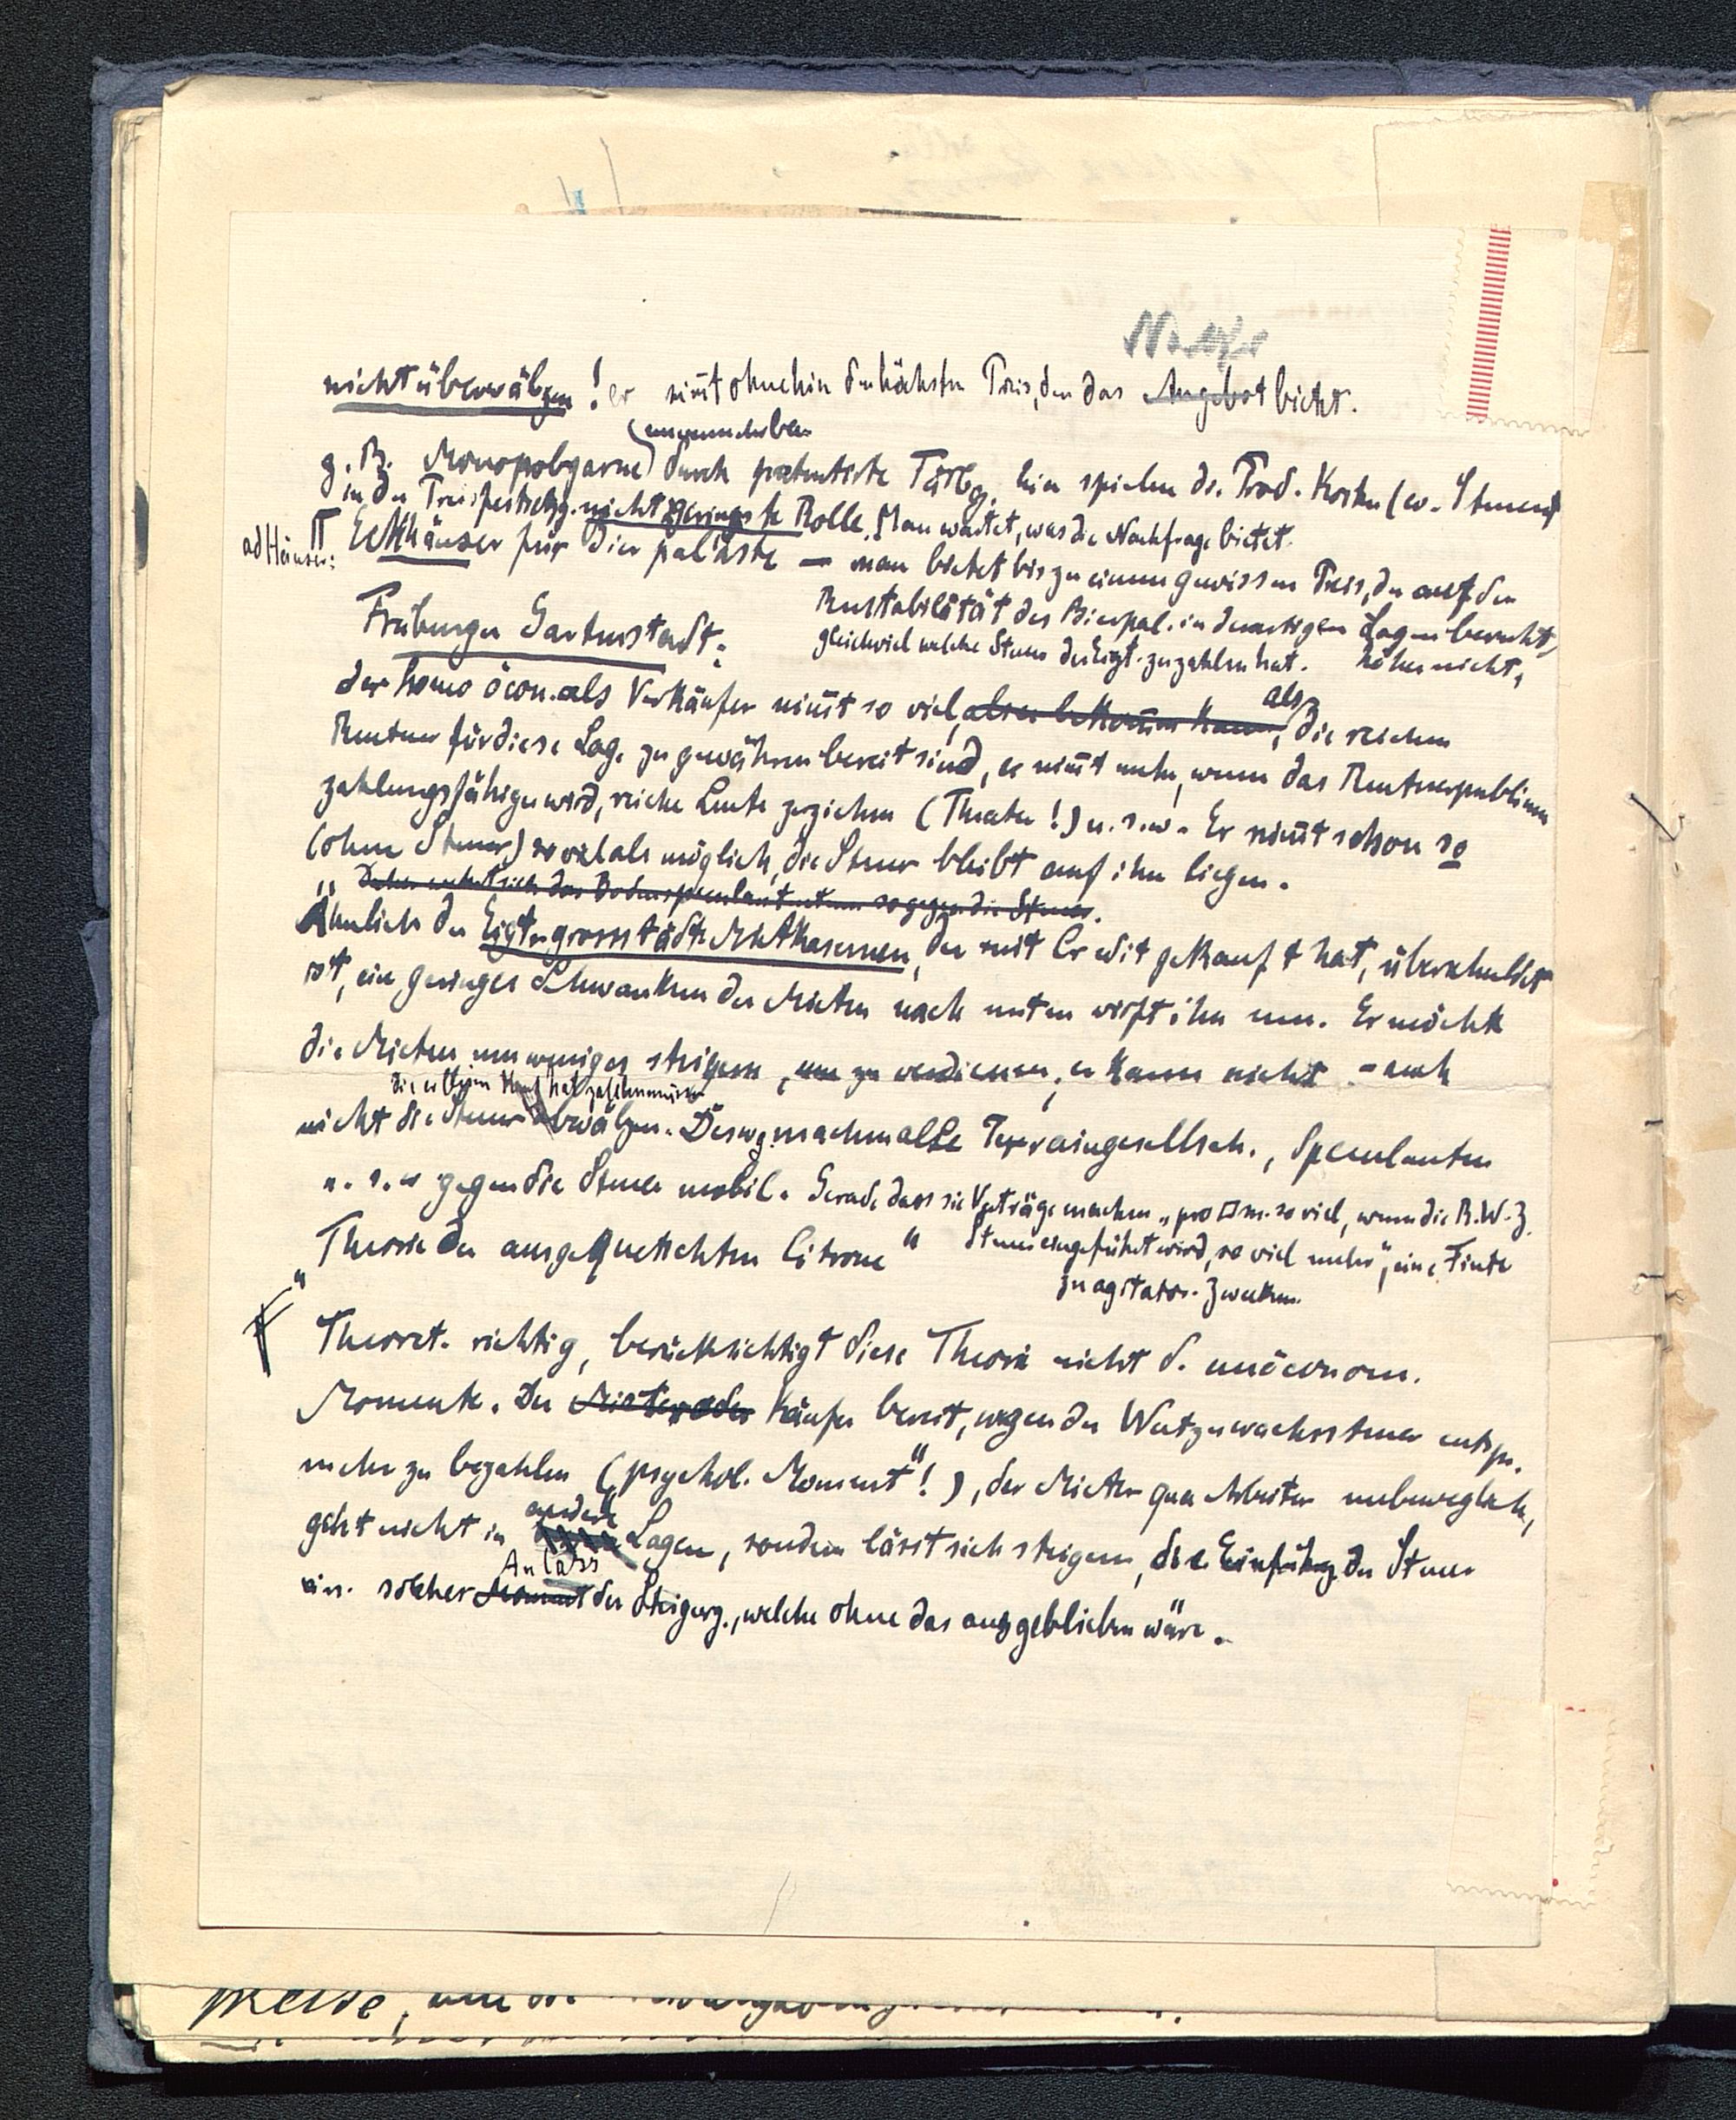 Nachfr
nicht überwälzen! er nim̄t ohnehin den höchsten Preis, den das Angebot bietet.
(unnachahmbar
z. B. Monopolgarne) durch patentirte Färbg. hier spielen die Prod. Kosten (ev. Steuern)
in der Preisfestsetzg. nicht geringste Rolle. Man wartet, was die Nachfrage bietet.
ad Häuser: II Eckhäuser für Bierpaläste — man bietet bis zu einem gewissen Preis, der auf der
Rentabilität des Bierpal. in derartigen Lagen beruht,
höher nicht,
gleichviel welche Steuer der Eigt. zu zahlen hat.
Freiburger Gartenstadt:
der homo öcon. als Verkäufer nim̄t so viel, als er bekom̄en kann, als die reichen
Rentner für diese Lage zu gewähren bereit sind, er nim̄t mehr, wenn das Rentnerpublikum
zahlungsfähiger wird, reiche Leute zuziehen (Theater!) u. s. w. Er nim̄t schon so
(ohne Steuer) so viel als möglich, die Steuer bleibt auf ihm liegen.
Daher wehrt sich das Bodenspekulantentum so gegen die Steuer.
Ähnlich der Eigt. grossstädt. Mietkasernen, der mit Credit gekauft hat, überschuldet
ist, ein geringes Schwanken der Mieten nach unten wirft ihn um. Er möchte
die Mieten um weniges steigern, um zu verdienen, er kann nicht – auch
die er beim Kauf hat zahlen müssen
nicht die Steuer abwälzen. Deswg. machen alle Terraingesellsch., Speculanten
u. s. w gegen die Steuer mobil. Gerade dass sie Verträge machen „pro □m. so viel, wenn die R.W.Z.
Steuer eingeführt wird, so viel mehr“, eine Finte
zu agitator. Zwecken.
„Theorie der ausgequetschten Citrone“
Theoret. richtig, berücksichtigt diese Theorie nicht d. unöconom.
Momente. Der Mieter oder Käufer bereit, wegen der Wertzuwachssteuer entspr.
mehr zu bezahlen („psychol. Moment“!), der Mieter qua Arbeiter unbeweglich,
geht nicht in andere Lagen, sondern lässt sich steigern, die Einführg. der Steuer
ein solcher Moment Anlass der Steigerg., welche ohne das ausgeblieben wäre.